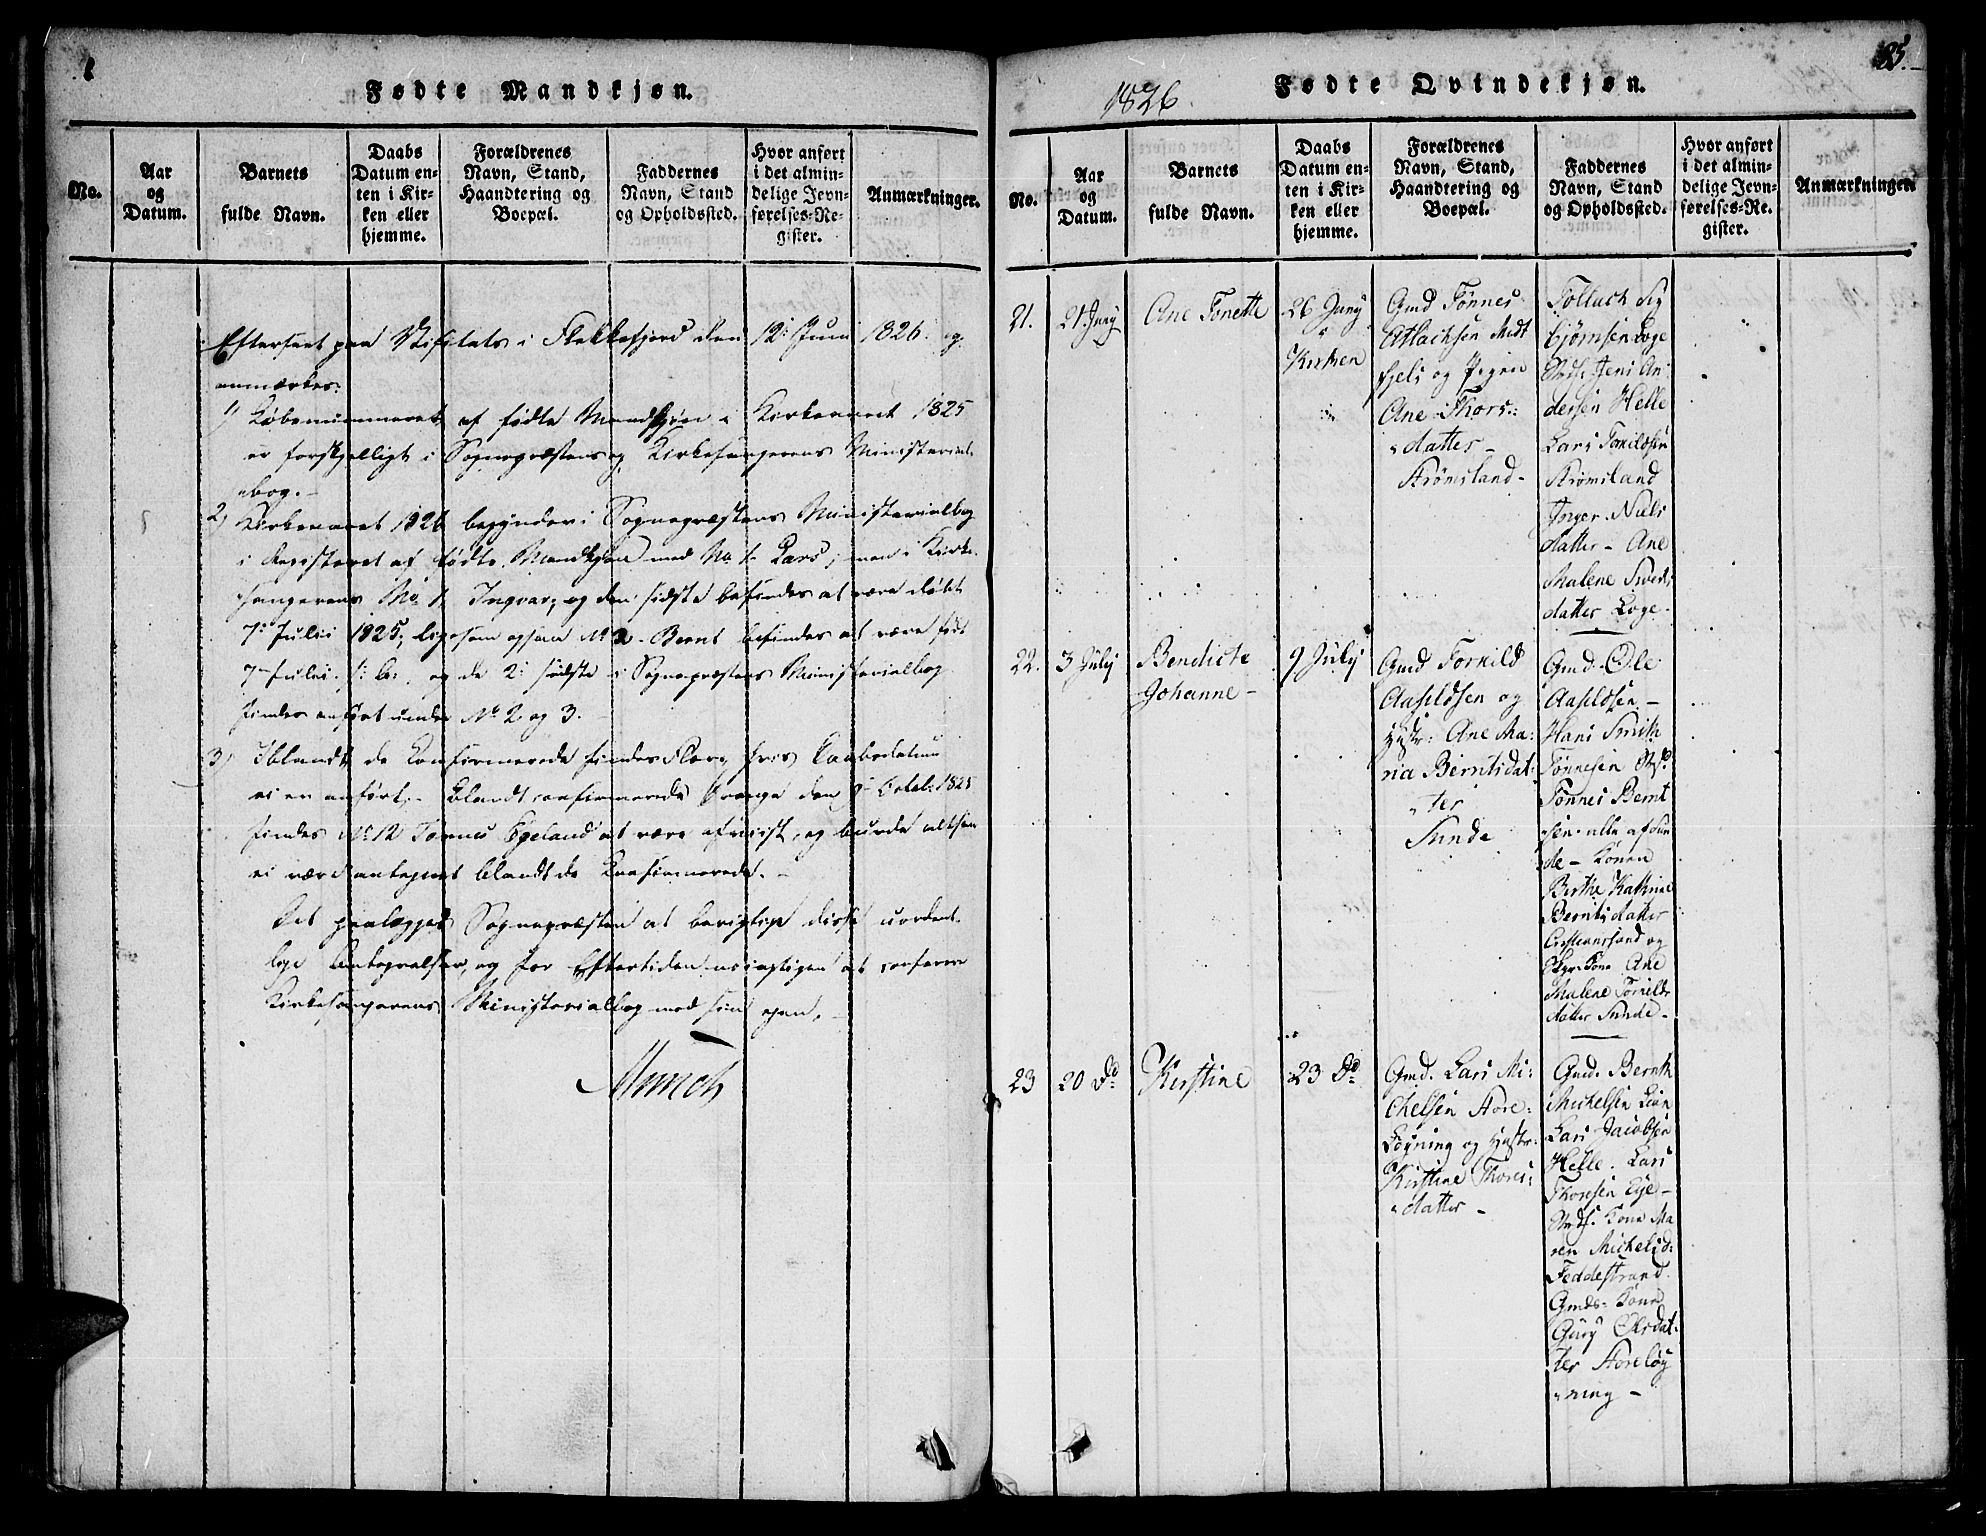 Fødte Mandkjøn.
No.
Aar
og
Datum.
Barnets
fulde Navn.
Daabs
Datum en-
ten i Kir-
ken eller
hjemme.
Forældrenes
Navn, Stand,
Haandtering og
Boepæl.
Faddernes
Navn, Stand
og Opholdssted.
Hvor anført
i det almin-
delige Jevn-
førelses-Re-
gister.
Anmærkninger.
Efterseet paa Visitats i Flekkefjord den 12te Juni 1826. og
anmærkes:
1) Løbenummeret af fødte Mandkjøn i Kirkeaaret 1825
er forskjelligt i Sognepræstens og Kirkesangerens Ministerial-
bog. -
2) Kirkeaaret 1826 begynder i Sognepræstens Ministerialbog
i Registeret af fødte Mandkjøn med No 1. Lars; men i Kirke-
sangerens No 1. Ingvar; og den sidste befindes at være døbt
7de Julii 1825; ligesom ogsaa No 2. Bernt befindes at være født
7de Julii og de 2 sidste i Sognepræstens Ministerialbog
findes anført under No 2 og 3. -
3) Iblandt de Confirmerede findes Flere, hvis Daabsdatum
ei er anført. - Blandt confirmerede Drenge den 9de Octob. 1825
findes No 12 Tønnes Egeland at være afviist, og burde altsaa
ei være antegnet blandt de Confirmerede. -
Det paalægges Sognepræsten at berigtige disse uordent-
lige Antegnelser, og for Eftertiden nøiagtigen at conferere
Kirkesangerens Ministerialbog med sin egen. -
Munch
1826.
Fødte Qvindekjøn.
85.
No.
Aar
og
Datum.
Barnets
fulde Navn.
Daabs
Datum en-
ten i Kir-
ken eller
hjemme.
Forældrenes
Navn, Stand,
Haandtering og
Boepæl.
Faddernes
Navn, Stand
og Opholdssted.
Hvor anført
i det almin-
delige Jevn-
førelses-Re-
gister.
Anmærkninger.
21.
21 Juny
Ane Tonette
26 Juny
i
Kirken
Gmd Tønnes
Atlachsen Midt
fjels og Pigen
Ane Thors:
datter -
Strømsland -
Tollach Sig
bjørnsen Loge
Jens An
dersen Helle
Lars Torkildsen
Strømsland
Inger Niels
datter - Ane
Malene Siverts
datter Loge.
22.
3 July
Benedicte
Johanne -
9 July
Gmd Torkild
Aasildsen og
Hustr: Ane Ma:
ria Berntsdat:
ter
Sunde
Gmd. Ole
Aasildsen -
Hans Smith
Tønnesen
Tønnes Bernt
sen alle af Sun
de - Konen
Birthe Kathrine
Berntsdatter
Cristianssand og
Kone Ane
Malene Torkilds
datter Sunde -
23
20 Do
Kirstine
23 Do
Gmd. Lars Mi:
chelsen Store:
Løgning og Hustr:
Kirstine Thores:
datter -
Gmd. Bernth
Michelsen
Lars Jacobsen
Helle. Lars
Thoresen Eye -
Kone Ma
ren Michelsd:
Feddestrand.
Gmds. Kone
Gury Olesdat:
ter Storeløg
ning -